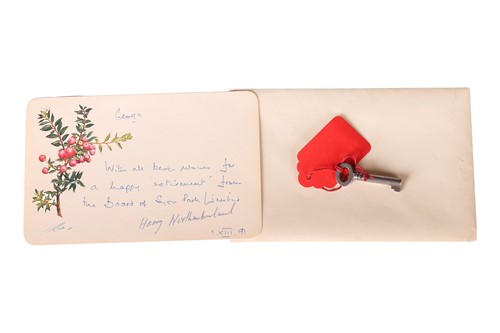 George
With all best wishes for
a happy retirement from
the Board of Syon Park Limited
Harry Northumberland